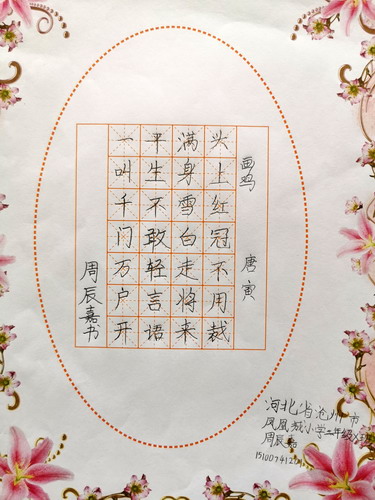 画鸡 唐寅
头上红冠不用裁
满身雪白走将来
平生不敢轻言语
一叫千门万户开
周辰嘉书
河北省沧州市
凤凰城小学二年级
周辰嘉